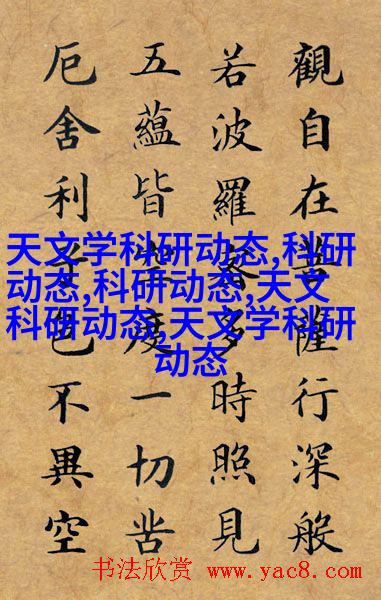 觀自在菩薩行深般
若波羅蜜多時照見
五蘊皆空度一切苦
厄舍利子色不異空
天文学科研动态,科研
动态,科研动态,天文
科研动态,天文学科研
动态
书法欣赏 www.yac8.com